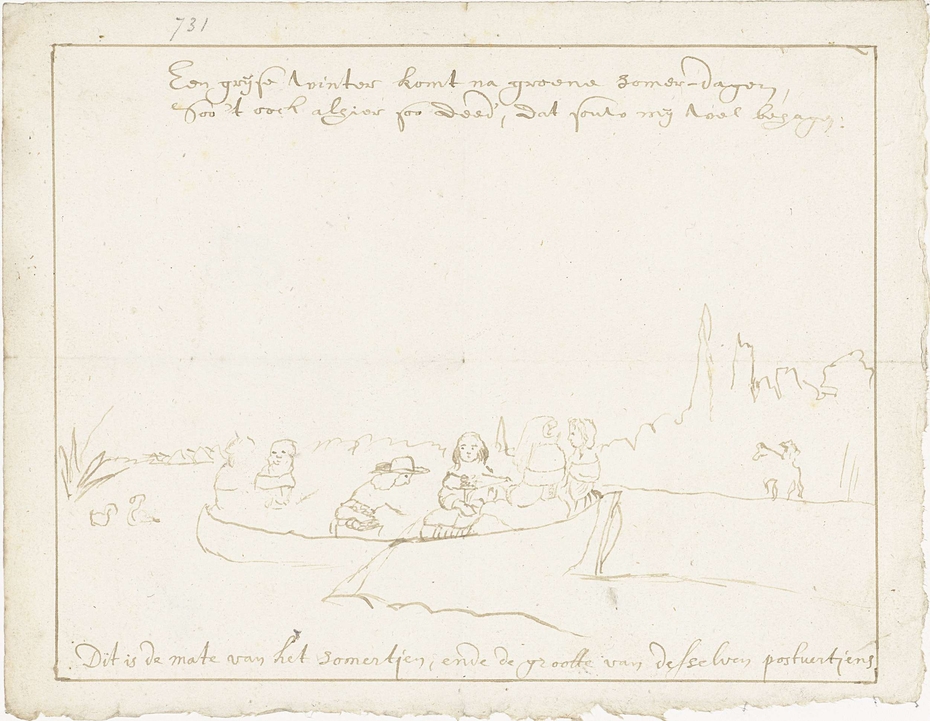 731
Een grijse winter komt na groene zomer-dagen,
Soo 't oock alhier soo deed', dat souw mij wel behagen.
Dit is de mate van het zomertjen, ende de grootte van desselven postuertjens.